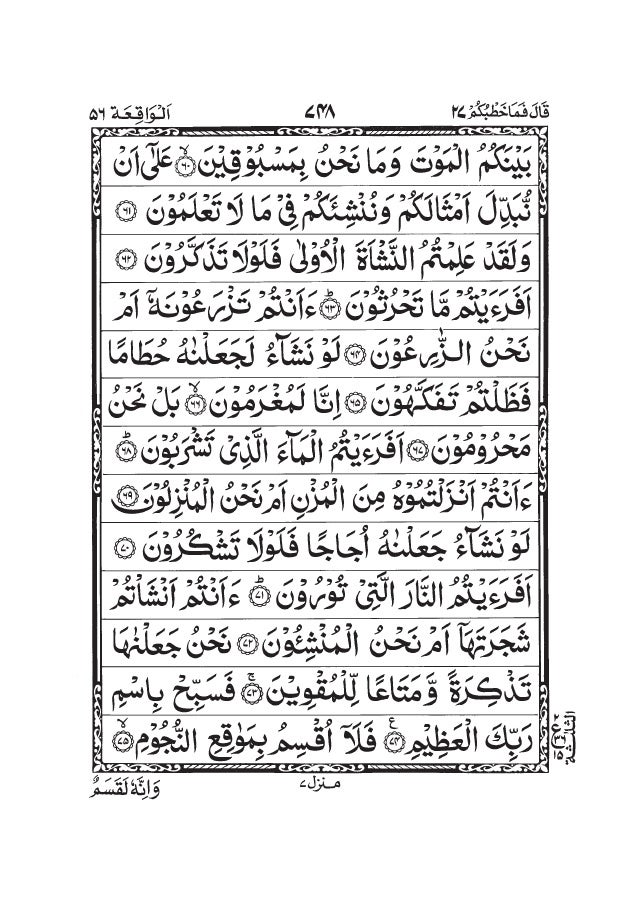 قَالَ فَمَا خَطْبُكُمْ ٢٧ ٧٤٨ اَلْوَاقِعَة ٥٦
بَيْنَكُمُ الْمَوْتَ وَمَا نَحْنُ بِمَسْبُوْقِيْنَ ۙ﴿٦٠﴾ عَلٰٓى اَنْ
نُّبَدِّلَ اَمْثَالَكُمْ وَنُنْشِئَكُمْ فِىْ مَا لَا تَعْلَمُوْنَ ﴿٦١﴾
وَلَقَدْ عَلِمْتُمُ النَّشْاَةَ الْاُوْلٰى فَلَوْلَا تَذَكَّرُوْنَ ﴿٦٢﴾
اَفَرَءَيْتُمْ مَّا تَحْرُثُوْنَ ؕ﴿٦٣﴾ ءَاَنْتُمْ تَزْرَعُوْنَهٗۤ اَمْ
نَحْنُ الزّٰرِعُوْنَ ﴿٦٤﴾ لَوْ نَشَآءُ لَجَعَلْنٰهُ حُطَامًا
فَظَلْتُمْ تَفَكَّهُوْنَ ﴿٦٥﴾ اِنَّا لَمُغْرَمُوْنَ ۙ﴿٦٦﴾ بَلْ نَحْنُ
مَحْرُوْمُوْنَ ﴿٦٧﴾ اَفَرَءَيْتُمُ الْمَآءَ الَّذِىْ تَشْرَبُوْنَ ؕ﴿٦٨﴾
ءَاَنْتُمْ اَنْزَلْتُمُوْهُ مِنَ الْمُزْنِ اَمْ نَحْنُ الْمُنْزِلُوْنَ ﴿٦٩﴾
لَوْ نَشَآءُ جَعَلْنٰهُ اُجَاجًا فَلَوْلَا تَشْكُرُوْنَ ﴿٧٠﴾
اَفَرَءَيْتُمُ النَّارَ الَّتِىْ تُوْرُوْنَ ؕ﴿٧١﴾ ءَاَنْتُمْ اَنْشَاْتُمْ
شَجَرَتَهَاۤ اَمْ نَحْنُ الْمُنْشِئُوْنَ ﴿٧٢﴾ نَحْنُ جَعَلْنٰهَا
تَذْكِرَةً وَّمَتَاعًا لِّلْمُقْوِيْنَ ۚ﴿٧٣﴾ فَسَبِّحْ بِاسْمِ
رَبِّكَ الْعَظِيْمِ ﴿٧٤﴾ ع فَلَاۤ اُقْسِمُ بِمَوٰقِعِ النُّجُوْمِ ۙ﴿٧٥﴾
الثلثة
منزل ٧
وَاِنَّهٗ لَقَسَمٌ